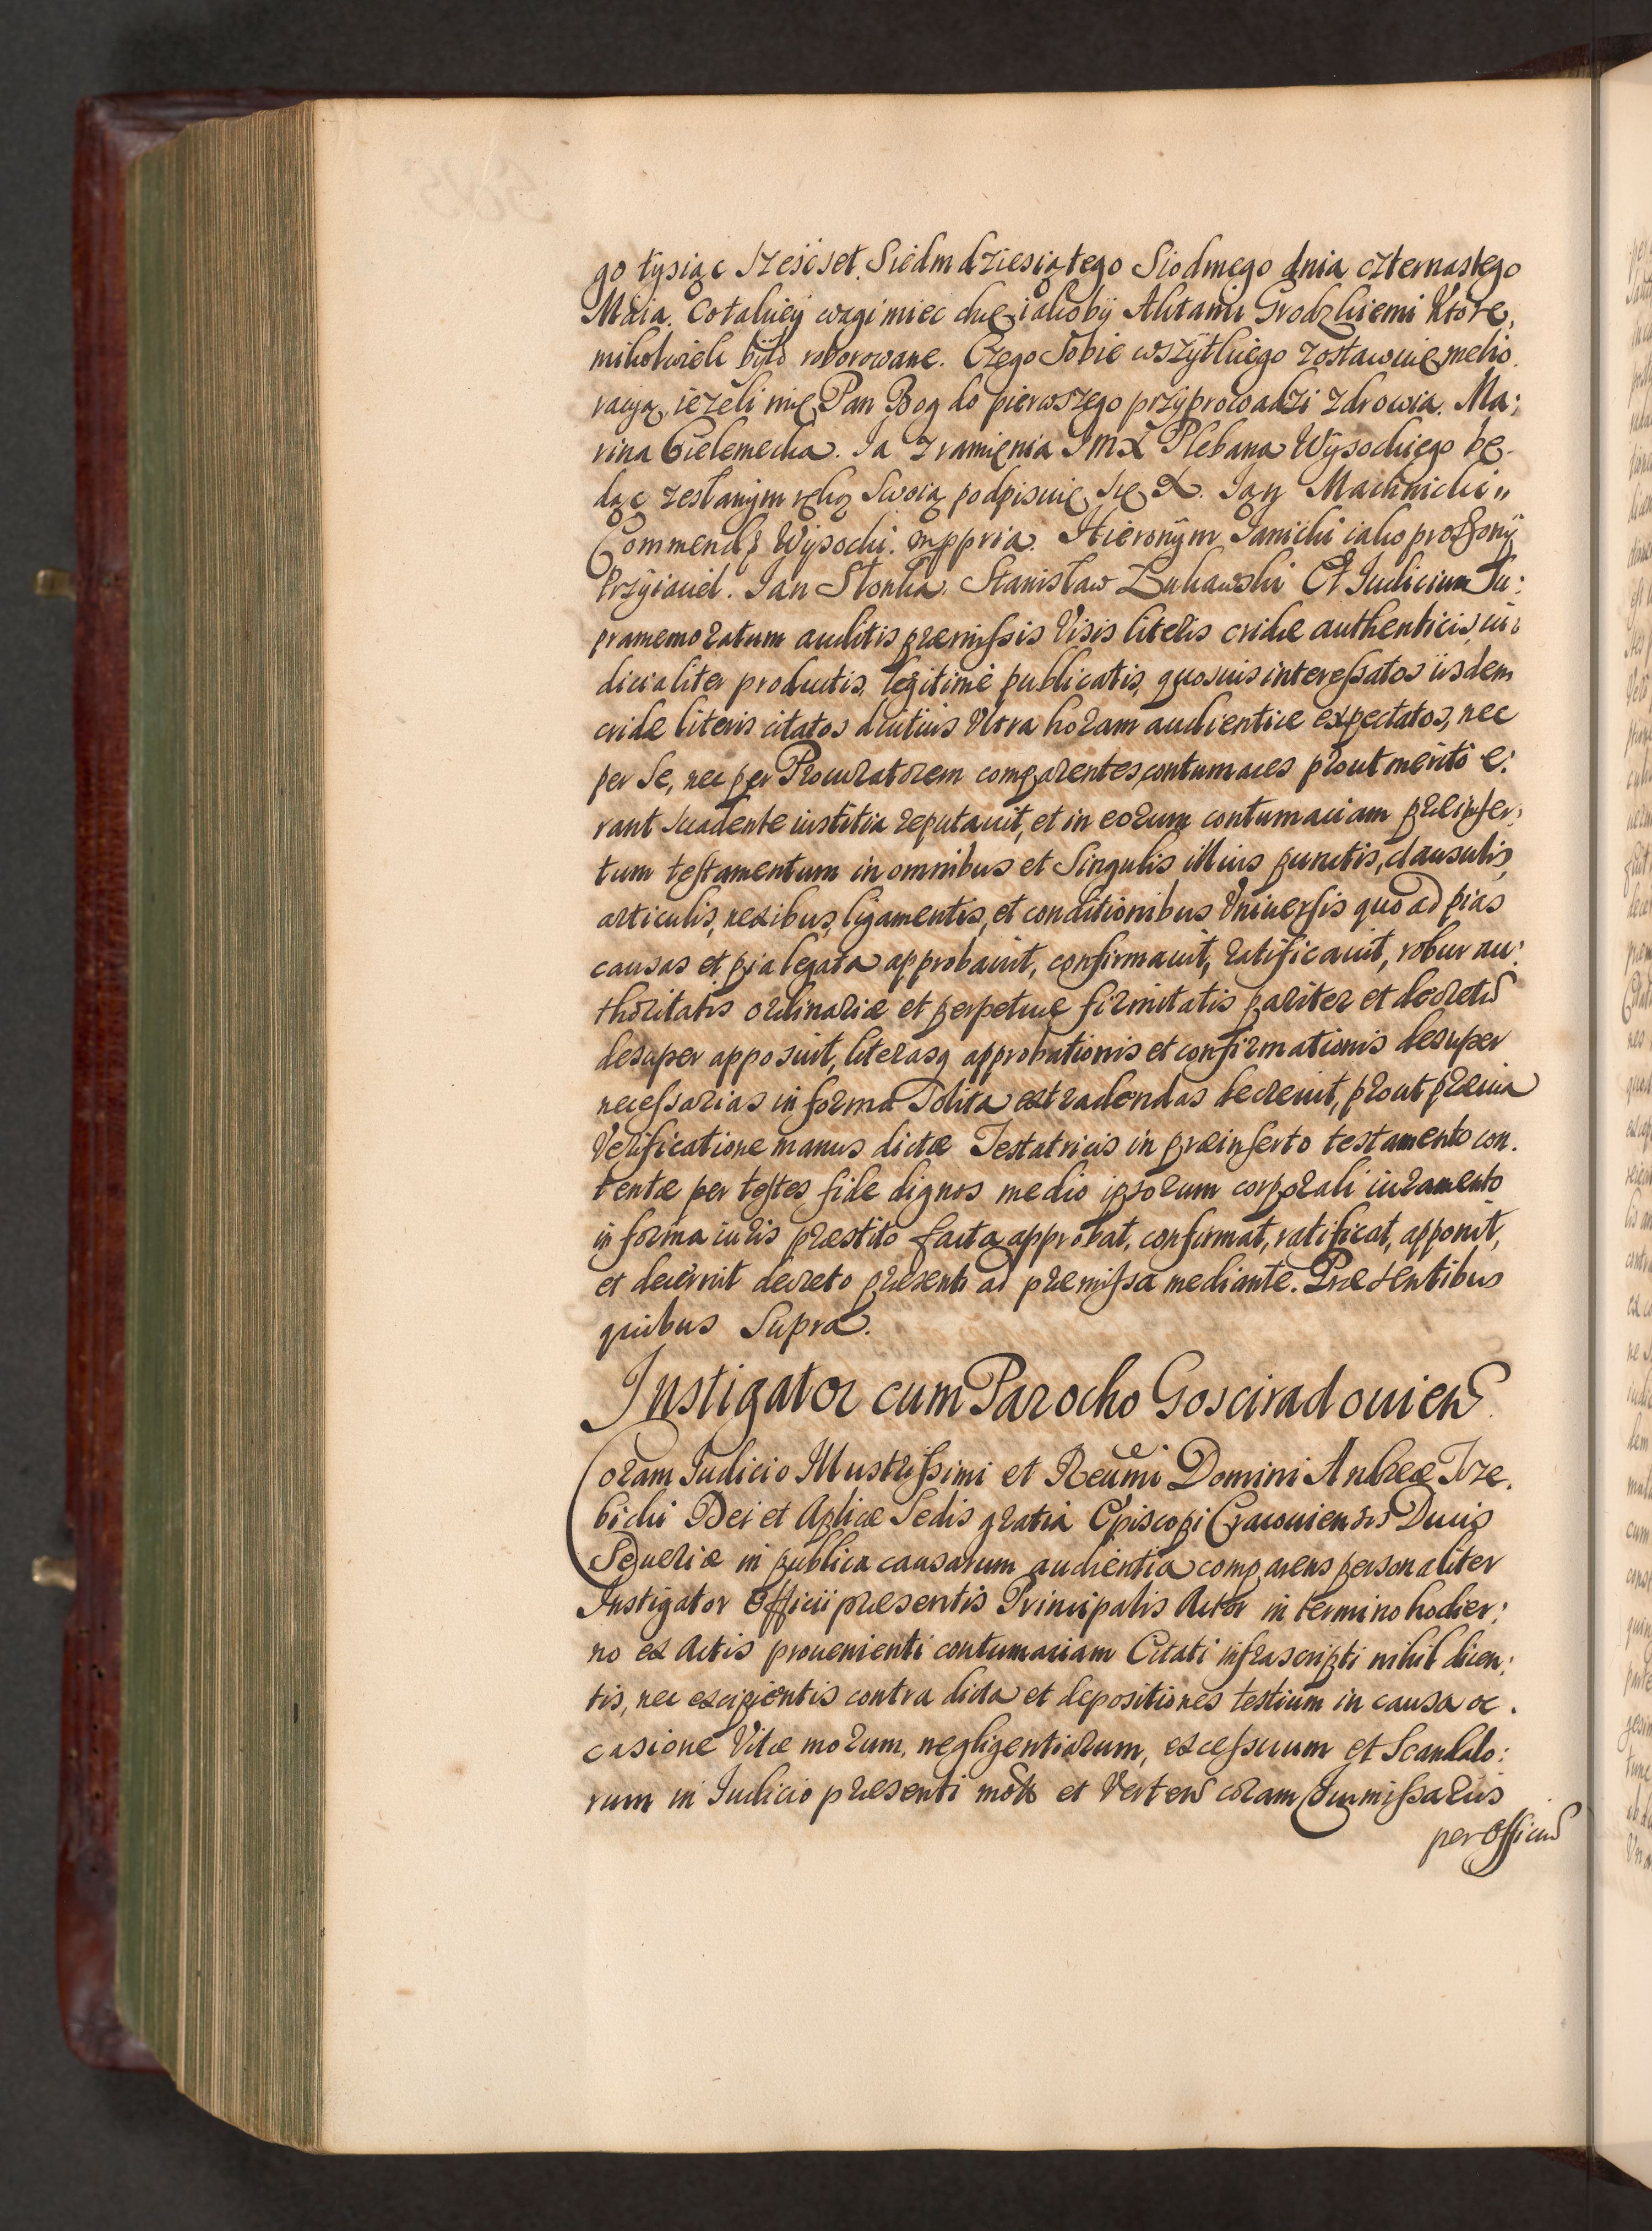 go tysiąc sześćset Siedmdziesiątego Siodmego dnia czternastego
Maia. Co takiey wagi miec chcę iakoby Aktami Grodzkiemi Ktore,
mikolwiek było roborowane. Czego Sobie wszytkiego zostawuię melio.
racyą, ieżeli mię Pan Bog do pierwszego przyprowadzi zdrowia. Ma:
rina Gielemecka. Ia z ramięnia JmX Plebana Wysockiego bę-
dąc zesłanym ręką Swoią podpisuię się X. Jan Machnicki
Commend Wysocki. mppria. Hieronym Janicki iako proszony
Przyiaciel. Jan Słonka. Stanisław Lukawski Et Iudicium Su:
pramemoratum auditis præmissis Visis literis cridæ authenticis, iu:
dicialiter productis, legitime publicatis, quosuis interessatos iisdem
cridæ literis citatos diutius Vltra horam audientiæ expectatos, nec
per Se, nec per Procuratorem comparentes, contumaces prout merito e:
rant suadente iustitia reputauit, et in eorum contumaciam præinser:
tum testamentum in omnibus et Singulis illius punctis, clausulis,
articulis, nexibus, ligamentis, et conditionibus Vniuersis quo ad pias
causas et pia legata approbauit, confirmauit, ratificauit, robur au:
thoritatis ordinariæ et perpetuæ firmitatis pariter et decretū
desuper apposuit, literasq approbationis et confirmationis desuper
necessarias in forma Solita extradendas decreuit, prout præuia
Verificatione manus dictæ Testatricis in præinserto testamento con.
tentæ per testes fide dignos medio ipsorum corporali iuramento
in forma iuris præstito facta approbat, confirmat, ratificat, apponit,
et decernit decreto præsenti ad præmissa mediante. Præsentibus
quibus Supra.
Instigator cum Parocho Gosciradouien
Coram Iudicio Illustrissimi et Reumi Domini Andreæ Trze.
bicki Dei et Aplicæ Sedis gratia Episcopi Cracouiensis Ducis
Seueriæ in publica causarum audientia comparens personaliter
Instigator Officii præsentis Principalis Actor in termino hodier:
no ex Actis prouenienti contumaciam Citati infrascripti nihil dicen:
tis, nec excipientis contra dicta et depositiones testium in causa oc.
casione Vitæ morum, negligentiarum, excessuum et Scandalo:
rum in Iudicio præsenti mota et Verten coram Commissariis
per Officiū